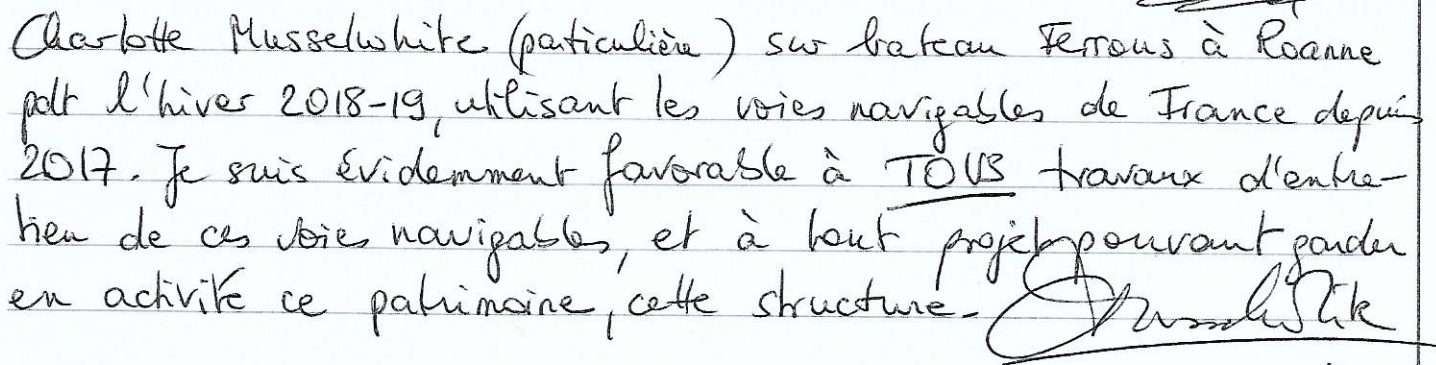 Charlotte Musselwhite (particulière) sur bateau Ferrous à Roanne
pdt l'hiver 2018-19, utilisant les voies navigables de France depuis
2017. Je suis évidemment favorable à TOUS travaux d'entre-
tien de ces voies navigables, et à tout projet pouvant garder
en activité ce patrimoine, cette structure.